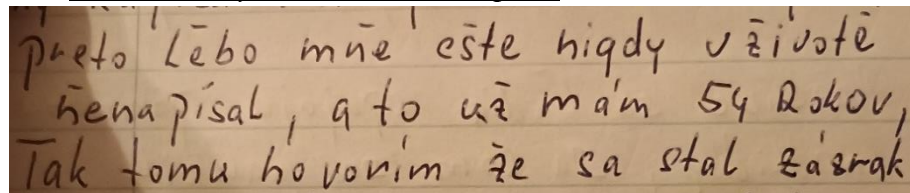 preto lebo mňe ešte nigdy v živoťe
ňenapísal, a to už mám 54 Rokov,
Tak tomu hovorím že sa stal zázrak